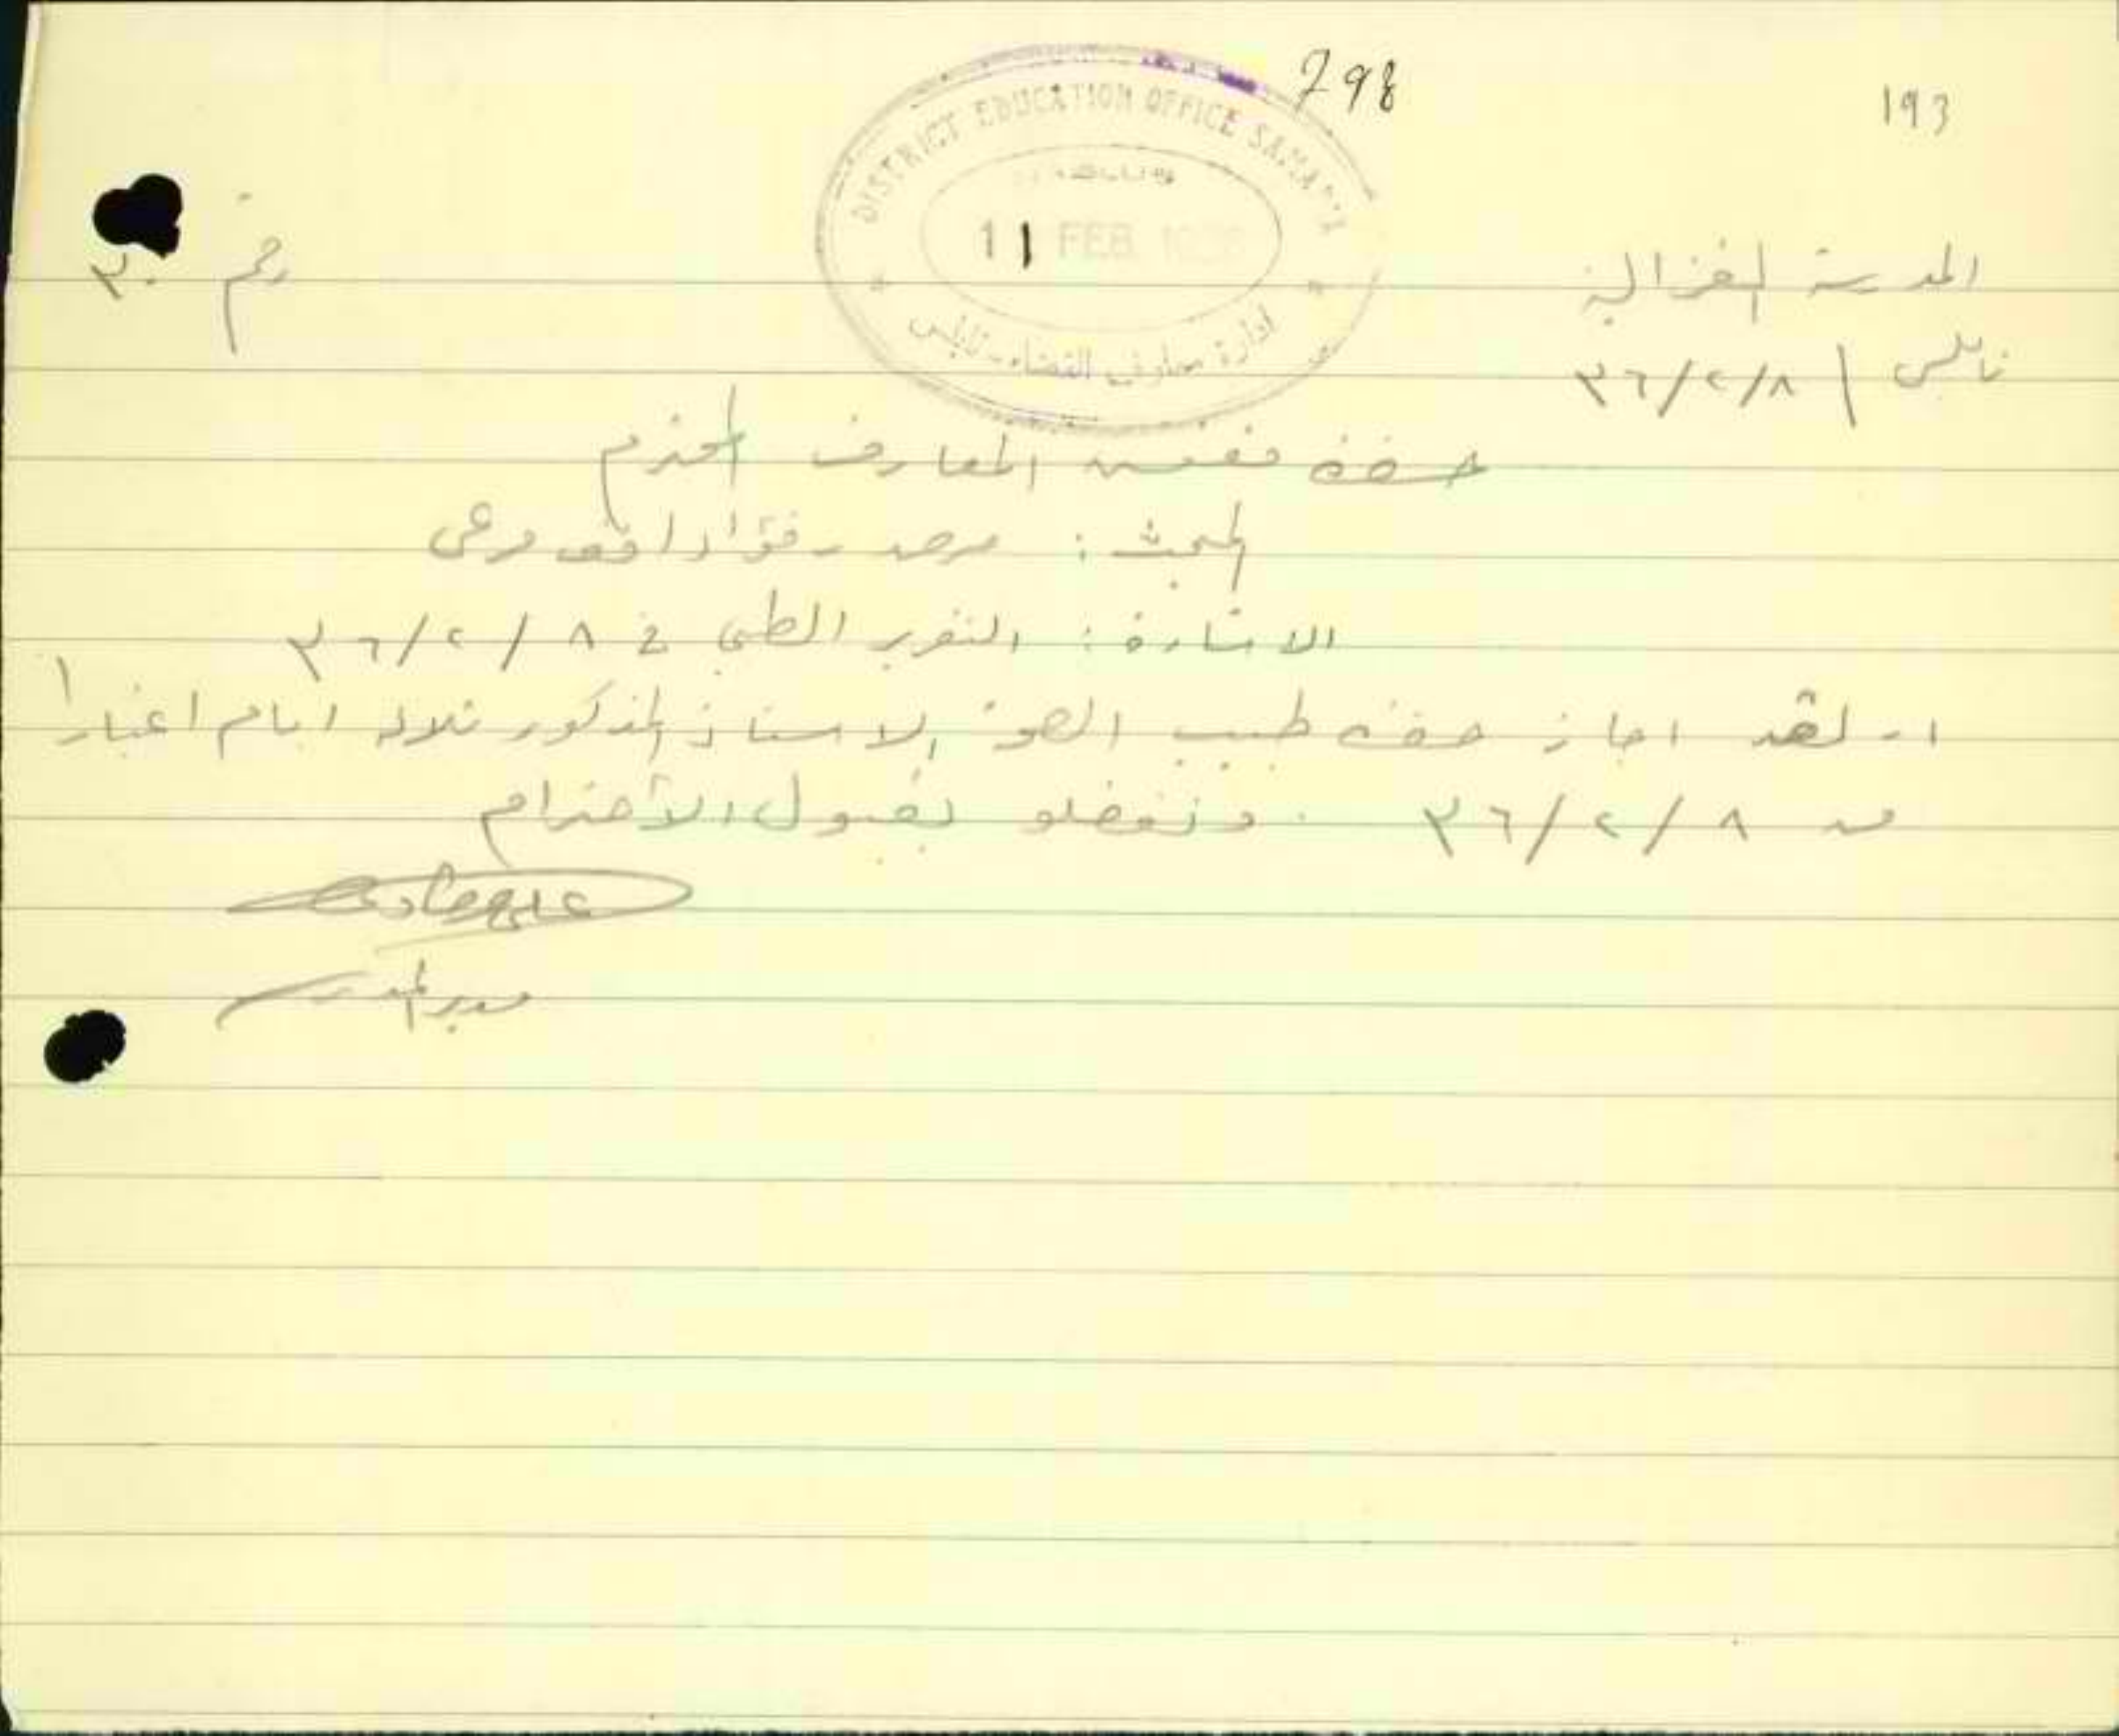 798
193
DISTRICT EDUCATION OFFICE SAMARIA
11 FEB. 1936
ادارة معارف القضاء - نابلس
المدرسة الغزالية
رقم ٣٠
نابلس / ٨/٢/٣٦
حضرة مفتش المعارف المحترم
المبحث: فؤاد مرعي
الاشارة: التقرير الطبي في ٨/٢/٣٦
١- لقد اجاز حضرة طبيب الصحة الاستاذ المذكور ثلاثة ايام اعتبارا
من ٨/٢/٣٦ . وتفضلو بقبول الاحترام
علي
مدير المدرسة